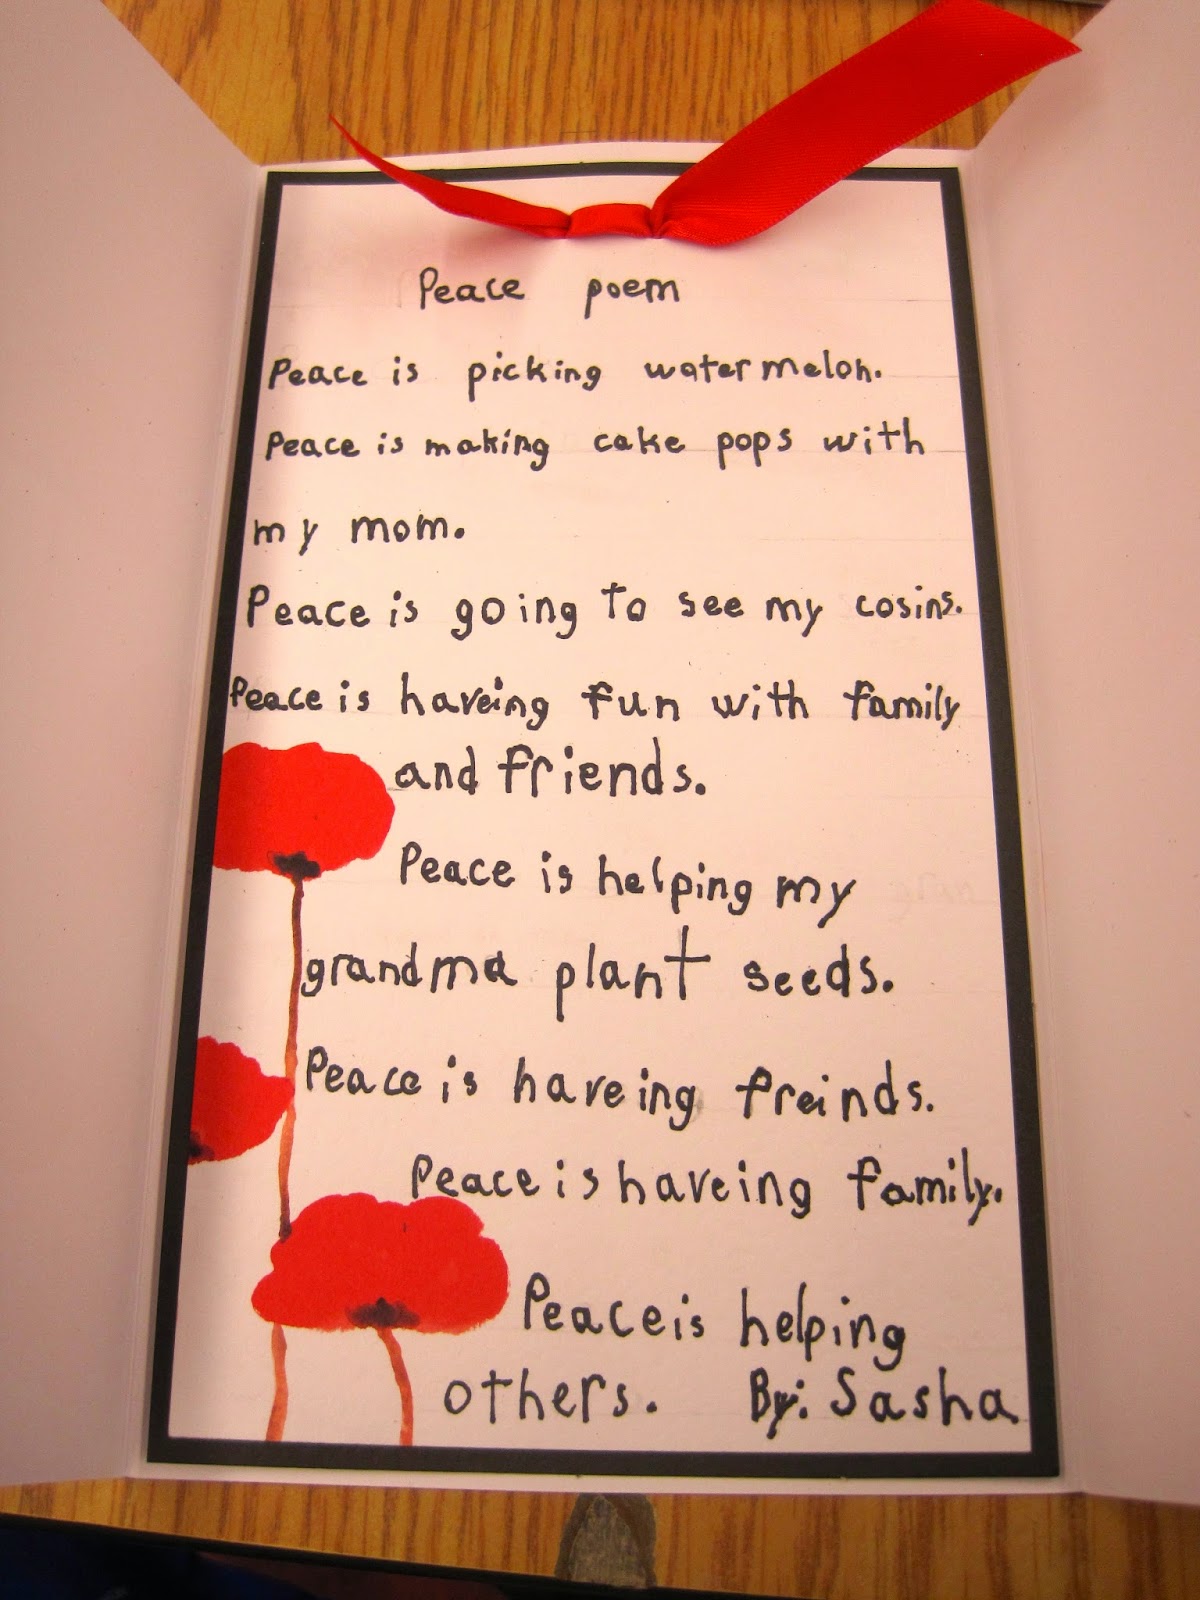 Peace poem
Peace is picking watermelon.
Peace is making cake pops with
my mom.
Peace is going to see my cosins.
Peace is haveing fun with family
and friends.
Peace is helping my
grandma plant seeds.
Peace is haveing freinds.
Peace is haveing family.
Peace is helping
others. By: Sasha